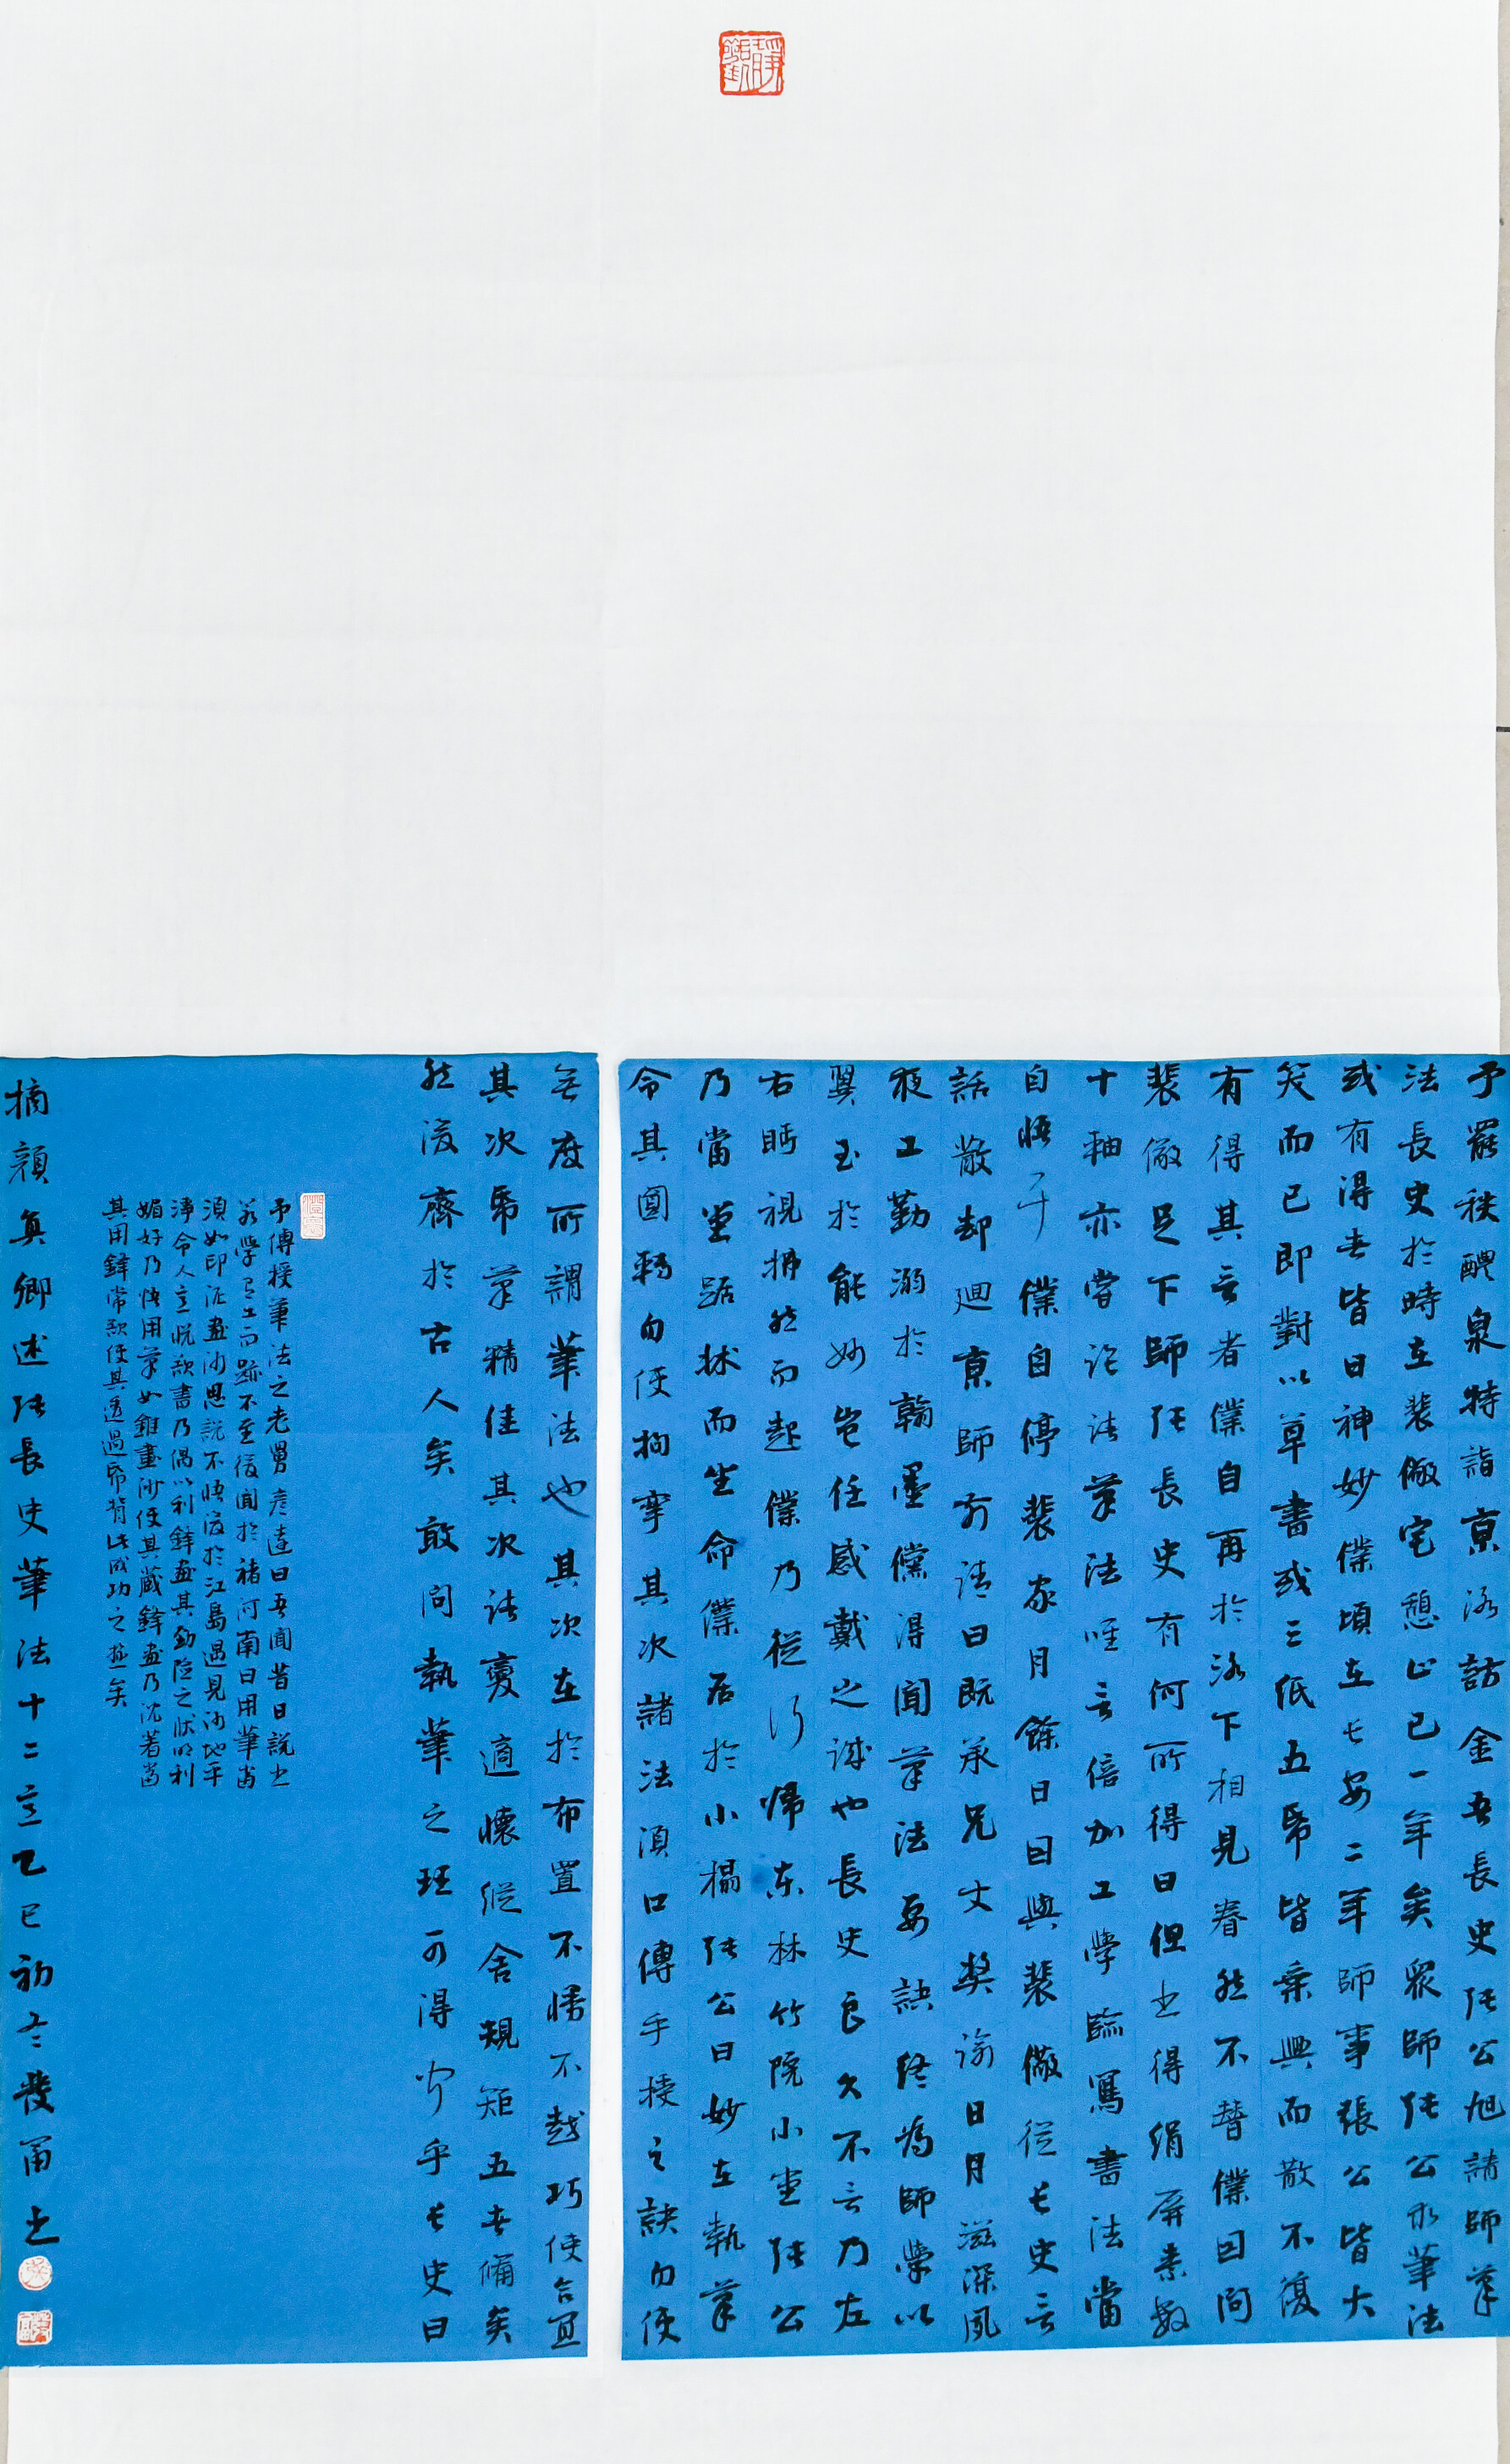 予罷秩醴泉特詣京洛訪金吾長史張公旭請師筆
法長史於時在裴儆宅憩止已一年矣眾師張公求筆法
或有得者皆曰神妙僕頃在長安二年師事張公皆大
笑而已即對以草書或三紙五紙皆乘興而散不復
有得其言者僕自再於洛下相見眷然不替僕因問
裴儆足下師張長史有何所得曰但書得絹屏素數
十軸亦嘗論諸筆法唯言倍加工學臨寫書法當
自悟耳僕自停裴家月餘日因與裴儆從長史言
話散却迴京師前請曰既承兄丈獎諭日月滋深夙
夜工勤溺於翰墨儻得聞筆法要訣終為師學以
冀至於能妙豈任感戴之誠也長史良久不言乃左
右眄視拂然而起僕乃從行歸東林竹院小堂張公
乃當堂踞牀而坐命僕居於小榻張公曰妙在執筆
令其圓轉勿使拘攣其次諸法須口傳手授之訣勿使
無度所謂筆法也其次在於布置不慢不越巧使合宜
其次紙筆精佳其次諸變適懷縱舍規矩五者備矣
然後齊於古人矣敢問執筆之理可得聞乎長史曰
予傳授筆法之老舅彥遠曰吾聞昔日說書
若學有工而跡不至後聞於褚河南曰用筆當
須如印泥畫沙思說不悟後於江島遇見沙地平
淨令人意悅欲書乃偶以利鋒畫其勁險之狀明利
媚好乃悟用筆如錐畫沙使其藏鋒畫乃沈著當
其用鋒常欲使其透過紙背此成功之極矣
摘顏真卿述張長史筆法十二意乙巳初冬發甫書